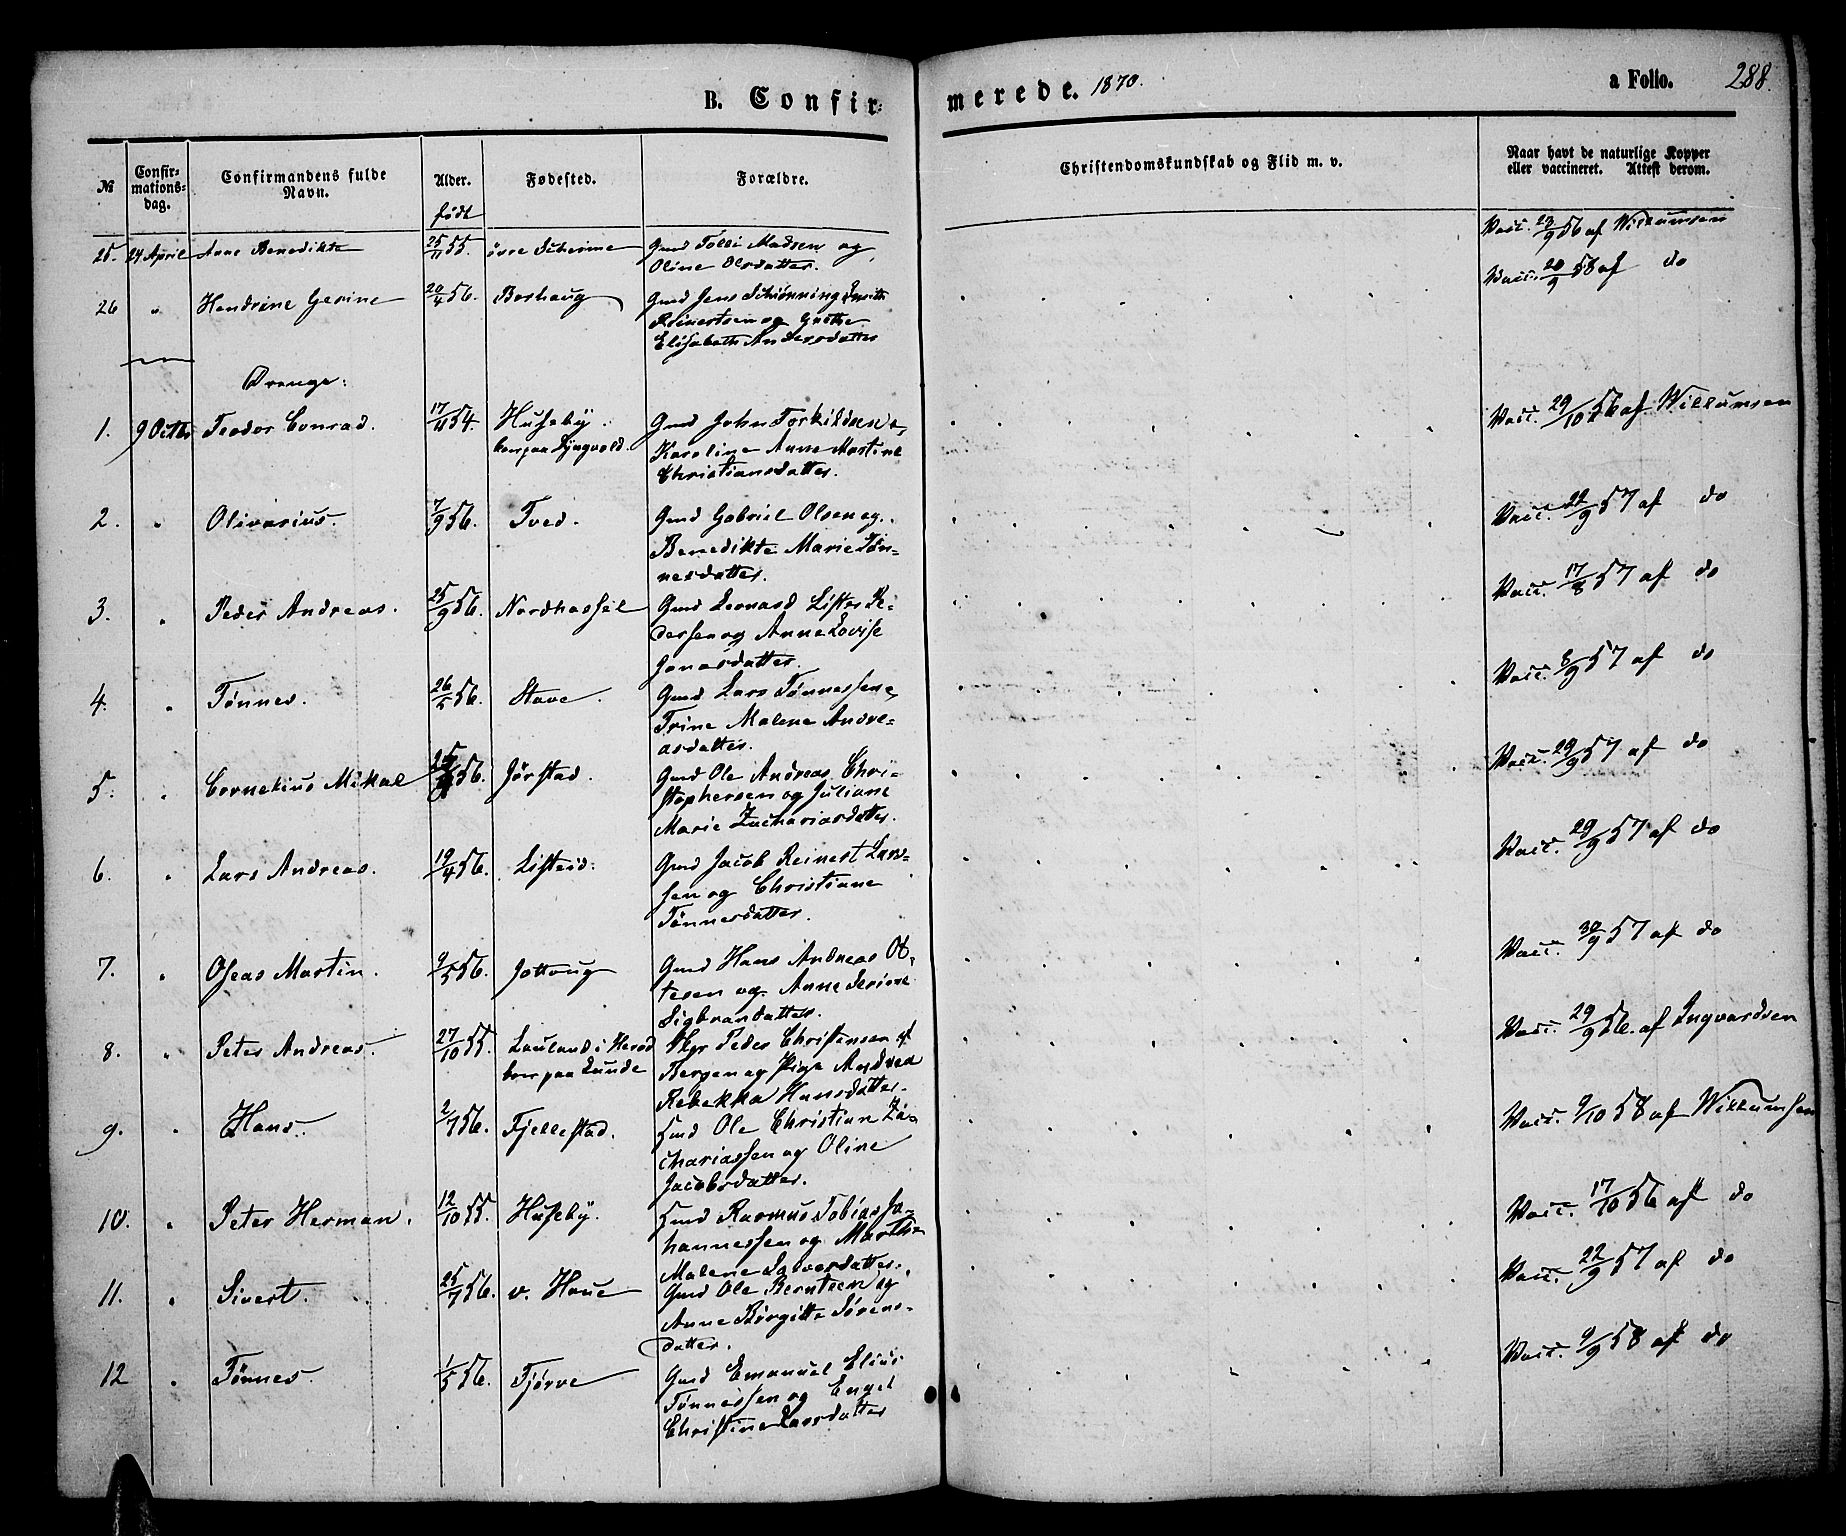 B. Confir-
merede. 1870.
a Folio. 288.
№
Confir-
mations-
dag.
Confirmandens fulde
Navn.
Alder.
født
Fødested.
Forældre.
Christendomskundskab og Flid m. v.
Naar havt de naturlige Kopper
eller vaccineret. Attest derom.
25. 24 April Anne Benedikte 25/11 55. øvre Skeime Gmd Tolli Madsen og Vacc. 28/9 56 af Willumsen
Oline Olsdatter. Vacc. 20/9 58 af do
26 " Hendrine Gesine 20/4 56. Borhaug Gmd Jens Schiønning Smith
Reinertsen og Grethe
Elisabeth Andersdatter
Vrange:
1. 9 Octbr Teodor Conrad. 17/11 54. Huseby. Gmd John Torkildsen & Vacc. 29/10 56 af Willumsen
boer paa Lyngvold. Karoline Anne Martine
Christiansdatter.
2. " Olivarius. 7/9 56. Tved. Gmd Gabriel Olsen og Vacc. 22/9 57 af do
Benedikte Marie Tøn-
nesdatter.
3. " Peder Andreas. 25/9 56. Nordhassel Gmd Leonard Lister Pe- Vacc. 17/8 57 af do
dersen og Anne Lovise
Jonasdatter.
4. " Tønnes. 26/5 56. Stave. Gmd Lars Tønnessen & Vacc. 8/9 57 af do
Trine Malene Andre-
asdatter.
5. " Cornelius Mikal 56. Jørstad. Gmd Ole Andreas Chri- Vacc. 29/9 57 af do
stophersen og Juliane
Marie Zachariasdatter.
6. " Lars Andreas. 19/4 56. Listeid. Gmd Jacob Reinert Lar- Vacc. 29/9 57 af do
sen og Christiane
Tønnesdatter.
7. " Oseas Martin. 9/5 56. Jottoug Gmd Hans Andreas Ot- Vacc. 30/9 57 af do
tesen og Anne Serine
Sigbrandatter.
8. " Peter Andreas. 27/10 55. Lauland i Herad Skpr Peder Christensen af Vacc. 29/9 56. af Ingvardsen
boer paa Lunde Bergen og Pige Andrea
Rebekka Hansdatter.
9. " Hans. 2/7 56. Fjellestad. Hmd Ole Christian Za- Vacc. 9/10 58 af Willumsen
chariassen og Oline
Jacobsdatter.
10. " Peter Herman. 12/10 55. Huseby. Hmd Rasmus Tobias Jo- Vacc. 17/10 56 af do
hannessen og Marthe
Malene Salvesdatter.
11. " Sivert. 25/7 56. v. Haue Gmd Ole Berntsen og Vacc. 22/9 57 af do
Anne Birgitte Sørens-
datter.
12 " Tønnes. 1/5 56. Tjørve Gmd Emanuel Elias Vacc. 9/9 58 af do
Tønnessen og Engel
Christine Larsdatter